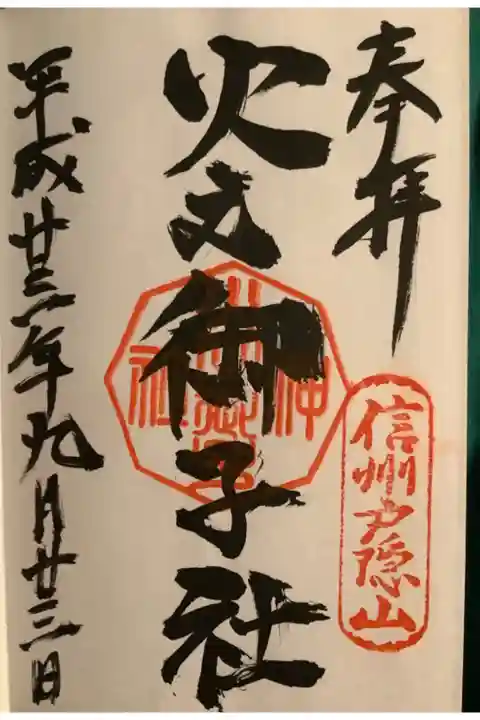 奉拝
信州戸隠山
火之御子社
平成廿三年九月廿三日